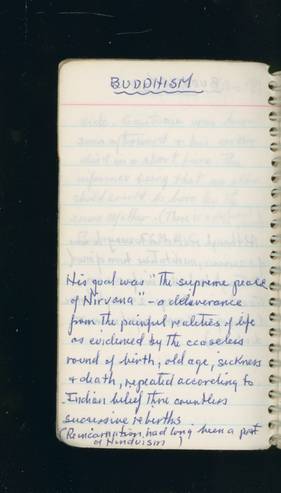 BUDDHISM
His goal was "The supreme peace
of Nirvana" - a deliverance
from the painful realities of life
as evidenced by the ceaseless
round of birth, old age, sickness
& death, repeated according to
Indian belief thru countless
successive rebirths
(Reincarnation had long been a part
of Hinduism)